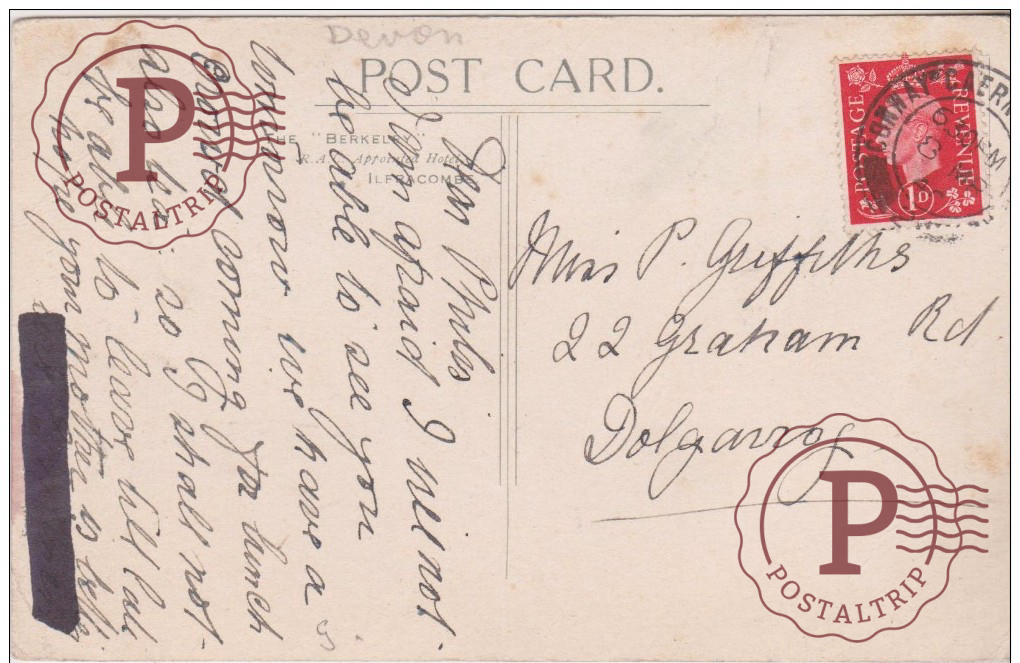 Devon
POST CARD.
THE "BERKELEY"
R.A.C. Appointed Hotel
ILFRACOMBE
POSTAGE REVENUE
1D
CONWAY
Miss P. Griffiths
22 Graham Rd
Dolgarrog
Dear Phyllis
I am afraid I will not
be able to see you
tomorrow we have a
coming for lunch
also so I shall not
be able to leave till late
hope your mother is better
P
POSTALTRIP
P
POSTALTRIP